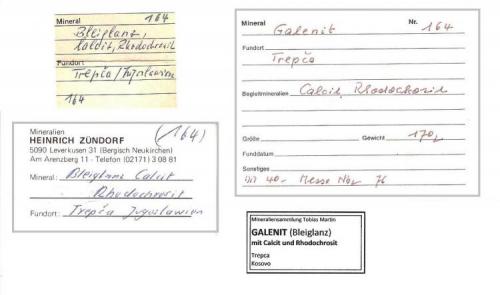 Mineral 164
Bleiglanz,
Calcit, Rhodochrosit
Fundort
Trepča/Jugoslawien
164
Mineral Nr.
Galenit 164
Fundort
Trepča
Begleitmineralien Calcit, Rhodochrosit
Größe Gewicht 170,
Funddatum
Sonstiges
40.- Messe Nov 76
Mineralien (164)
HEINRICH ZÜNDORF
5090 Leverkusen 31 (Bergisch Neukirchen)
Am Arenzberg 11 - Telefon (02171) 3 08 81
Mineral: Bleiglanz Calcit
Rhodochrosit
Fundort: Trepča Jugoslawien
Mineraliensammlung Tobias Martin
GALENIT (Bleiglanz)
mit Calcit und Rhodochrosit
Trepca
Kosovo